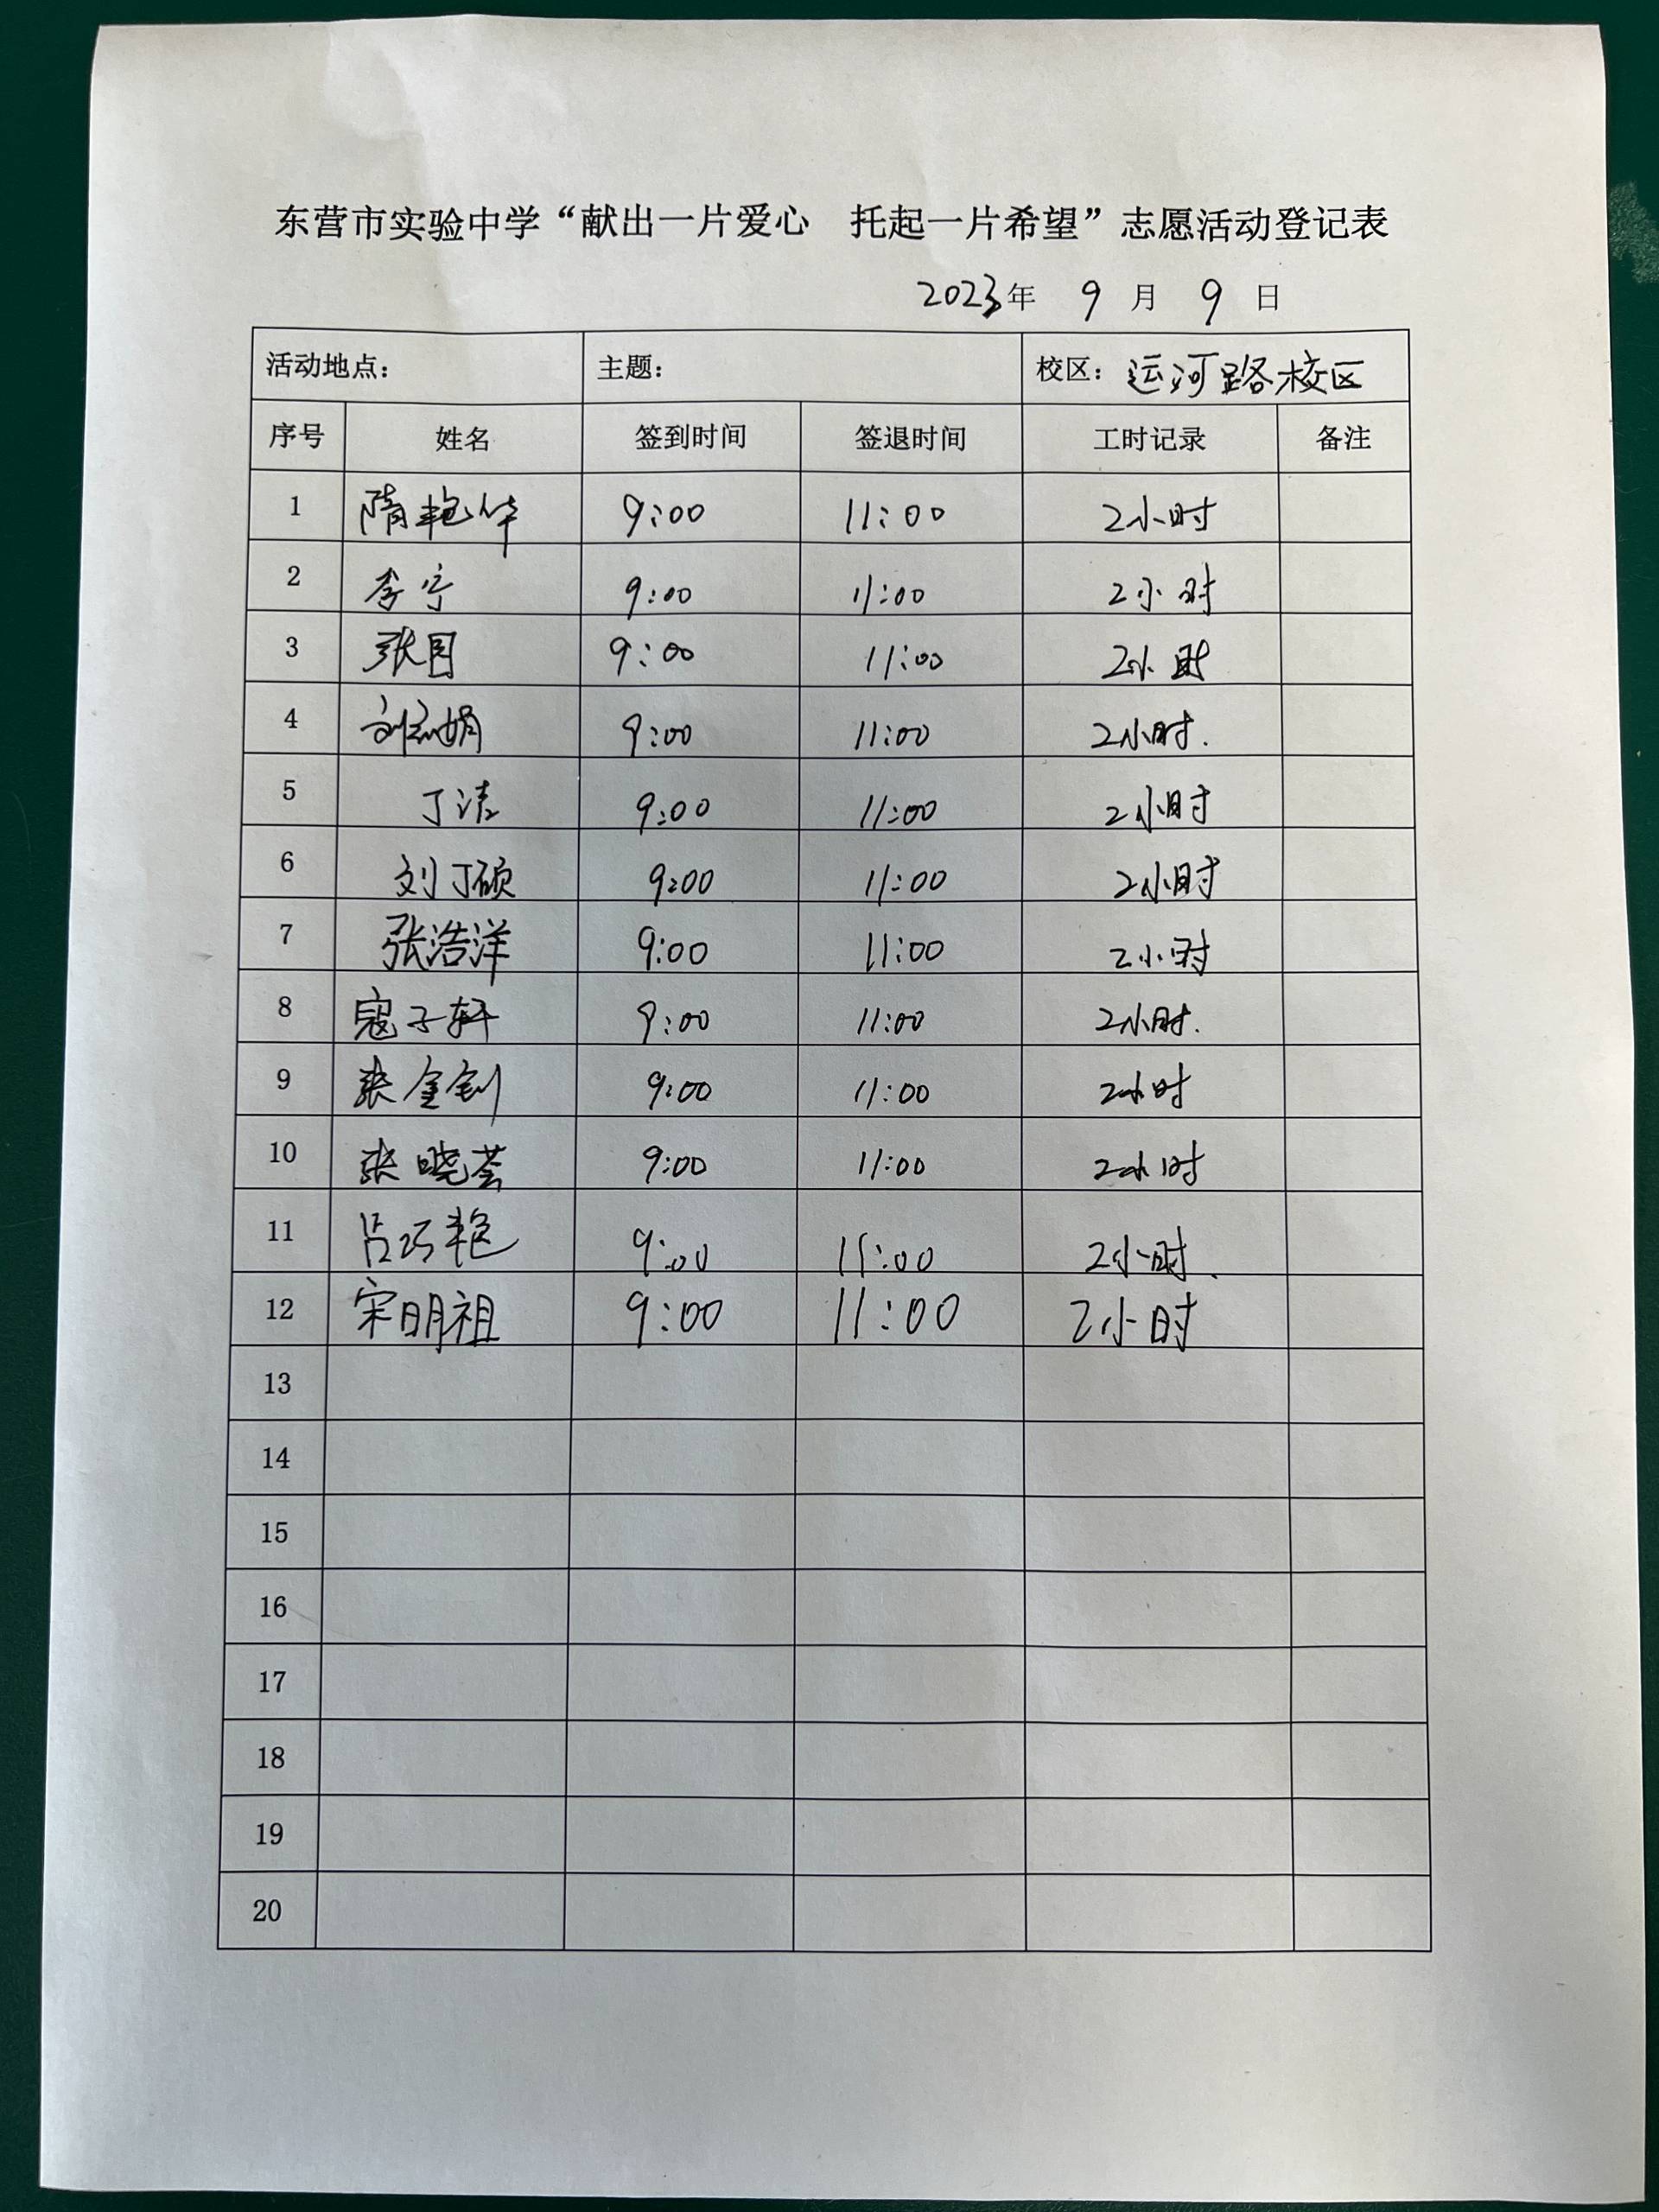 东营市实验中学“献出一片爱心 托起一片希望”志愿活动登记表
2023年 9 月 9 日
活动地点： 主题： 校区：运河路校区
序号 姓名 签到时间 签退时间 工时记录 备注
1 隋艳华 9:00 11:00 2小时
2 李宁 9:00 11:00 2小时
3 张目 9:00 11:00 2小时
4 刘娟 9:00 11:00 2小时.
5 丁洁 9:00 11:00 2小时
6 刘丁硕 9:00 11:00 2小时
7 张浩洋 9:00 11:00 2小时
8 寇子轩 9:00 11:00 2小时.
9 张金钊 9:00 11:00 2小时
10 张晓荟 9:00 11:00 2小时
11 吕巧艳 9:00 11:00 2小时.
12 宋明祖 9:00 11:00 2小时
13
14
15
16
17
18
19
20